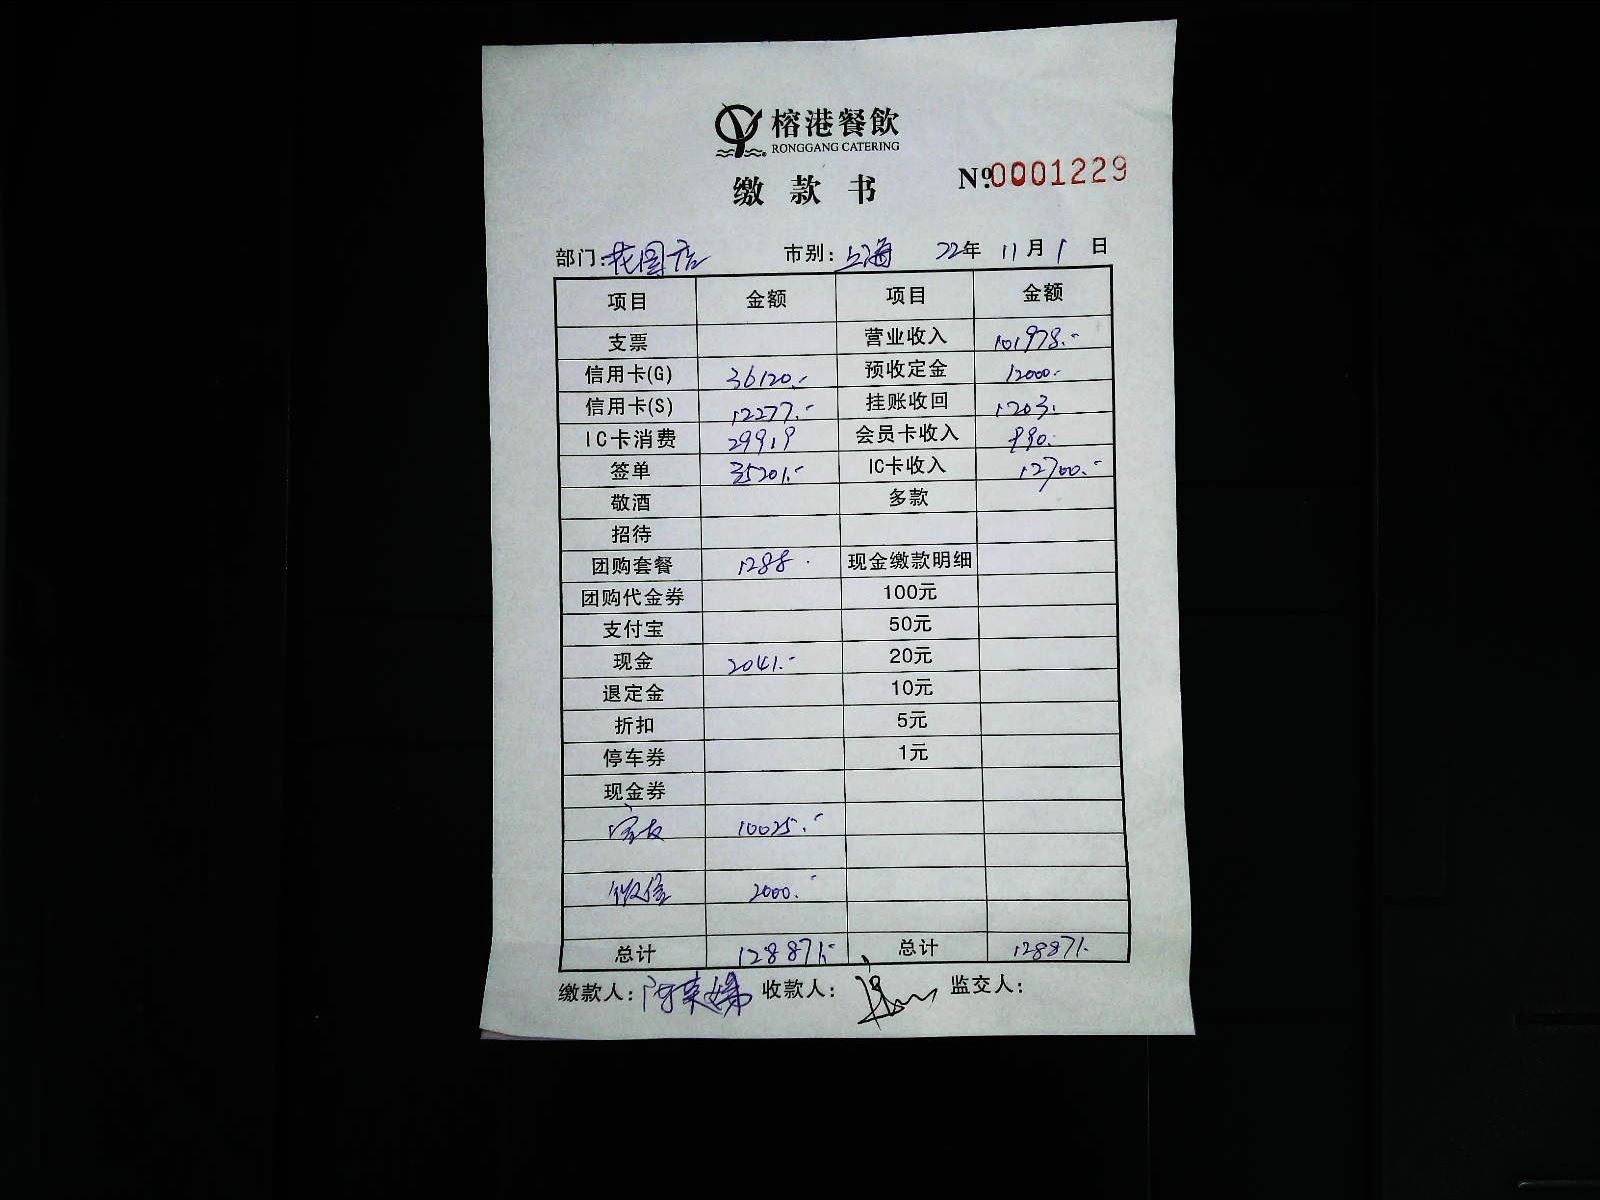 榕港餐飲
RONGGANG CATERING
缴款书
Nº 0001229
部门：花园店 市别：上海 22年 11月 1日
项目 金额 项目 金额
支票 营业收入 101978.-
信用卡(G) 36120.- 预收定金 12000.-
信用卡(S) 12277.- 挂账收回 1203.
IC卡消费 29919 会员卡收入 990.
签单 35201.- IC卡收入 12700.-
敬酒 多款
招待
团购套餐 1288. 现金缴款明细
团购代金券 100元
支付宝 50元
现金 2041.- 20元
退定金 10元
折扣 5元
停车券 1元
现金券
10025.-
微信 2000.-
总计 128871.- 总计 128871.
缴款人： 收款人： 监交人：